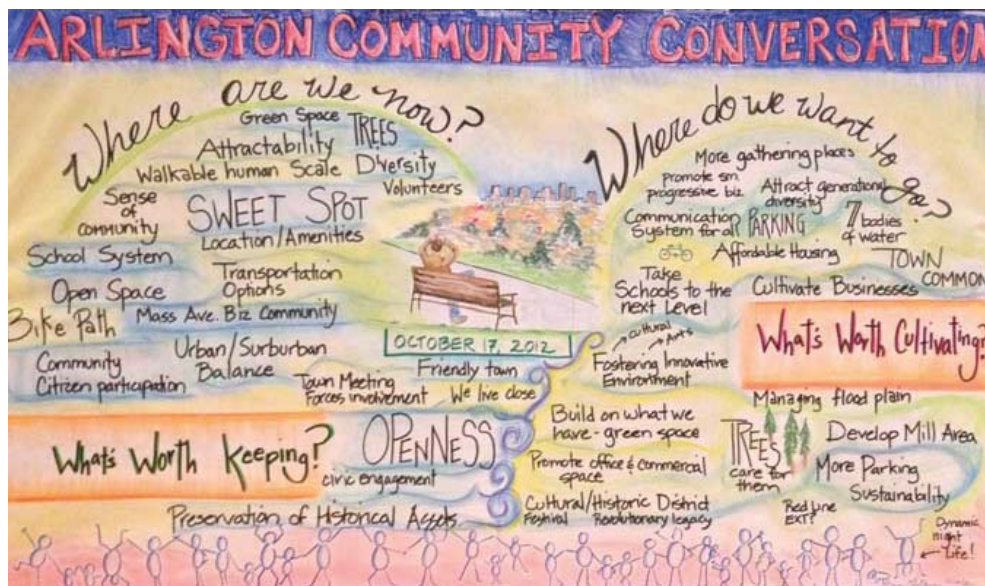 ARLINGTON COMMUNITY CONVERSATION
Where are we now?
Green Space
TREES
Attractability
Walkable human Scale
Diversity
Volunteers
Sense
of
community
SWEET SPOT
Location/Amenities
School System
Transportation
Options
Open Space
Bike Path
Mass Ave. Biz Community
Community
Citizen participation
Urban/Surburban
Balance
Town Meeting
Forces involvement
Friendly town
We live close
What's Worth Keeping?
OPENNESS
civic engagement
Preservation of Historical Assets
OCTOBER 17, 2012
Where do we want to go?
More gathering places
promote sm.
progressive biz.
Attract generational
diversity
Communication
System for all
PARKING
7 bodies
of water
Affordable Housing
TOWN
COMMON
Take
Schools to the
next Level
Cultivate Businesses
What's Worth Cultivating?
cultural
Arts
Fostering Innovative
Environment
Managing flood plain
Build on what we
have - green space
TREES
care for
them
Develop Mill Area
More Parking
Sustainability
Promote office & commercial
space
Cultural/Historic District
Festival Revolutionary legacy
Red Line
EXT?
Dynamic
night
Life!